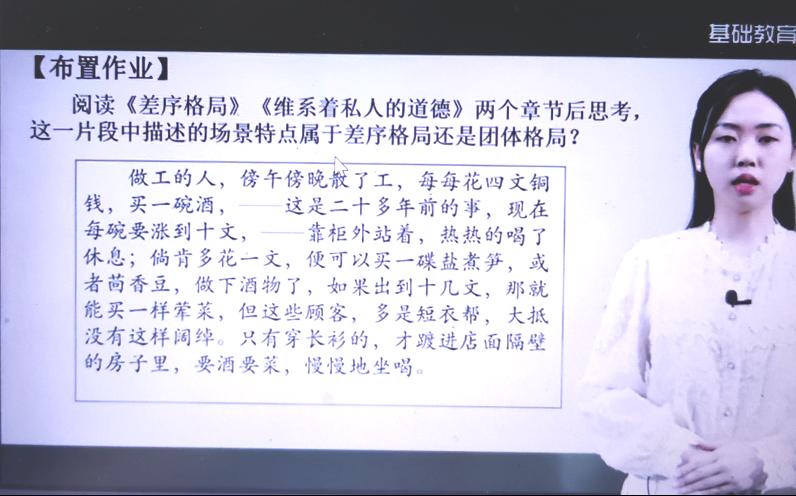 基础教育
【布置作业】
阅读《差序格局》《维系着私人的道德》两个章节后思考，
这一片段中描述的场景特点属于差序格局还是团体格局？
做工的人，傍午傍晚散了工，每每花四文铜
钱，买一碗酒，——这是二十多年前的事，现在
每碗要涨到十文，——靠柜外站着，热热的喝了
休息；倘肯多花一文，便可以买一碟盐煮笋，或
者茴香豆，做下酒物了，如果出到十几文，那就
能买一样荤菜，但这些顾客，多是短衣帮，大抵
没有这样阔绰。只有穿长衫的，才踱进店面隔壁
的房子里，要酒要菜，慢慢地坐喝。